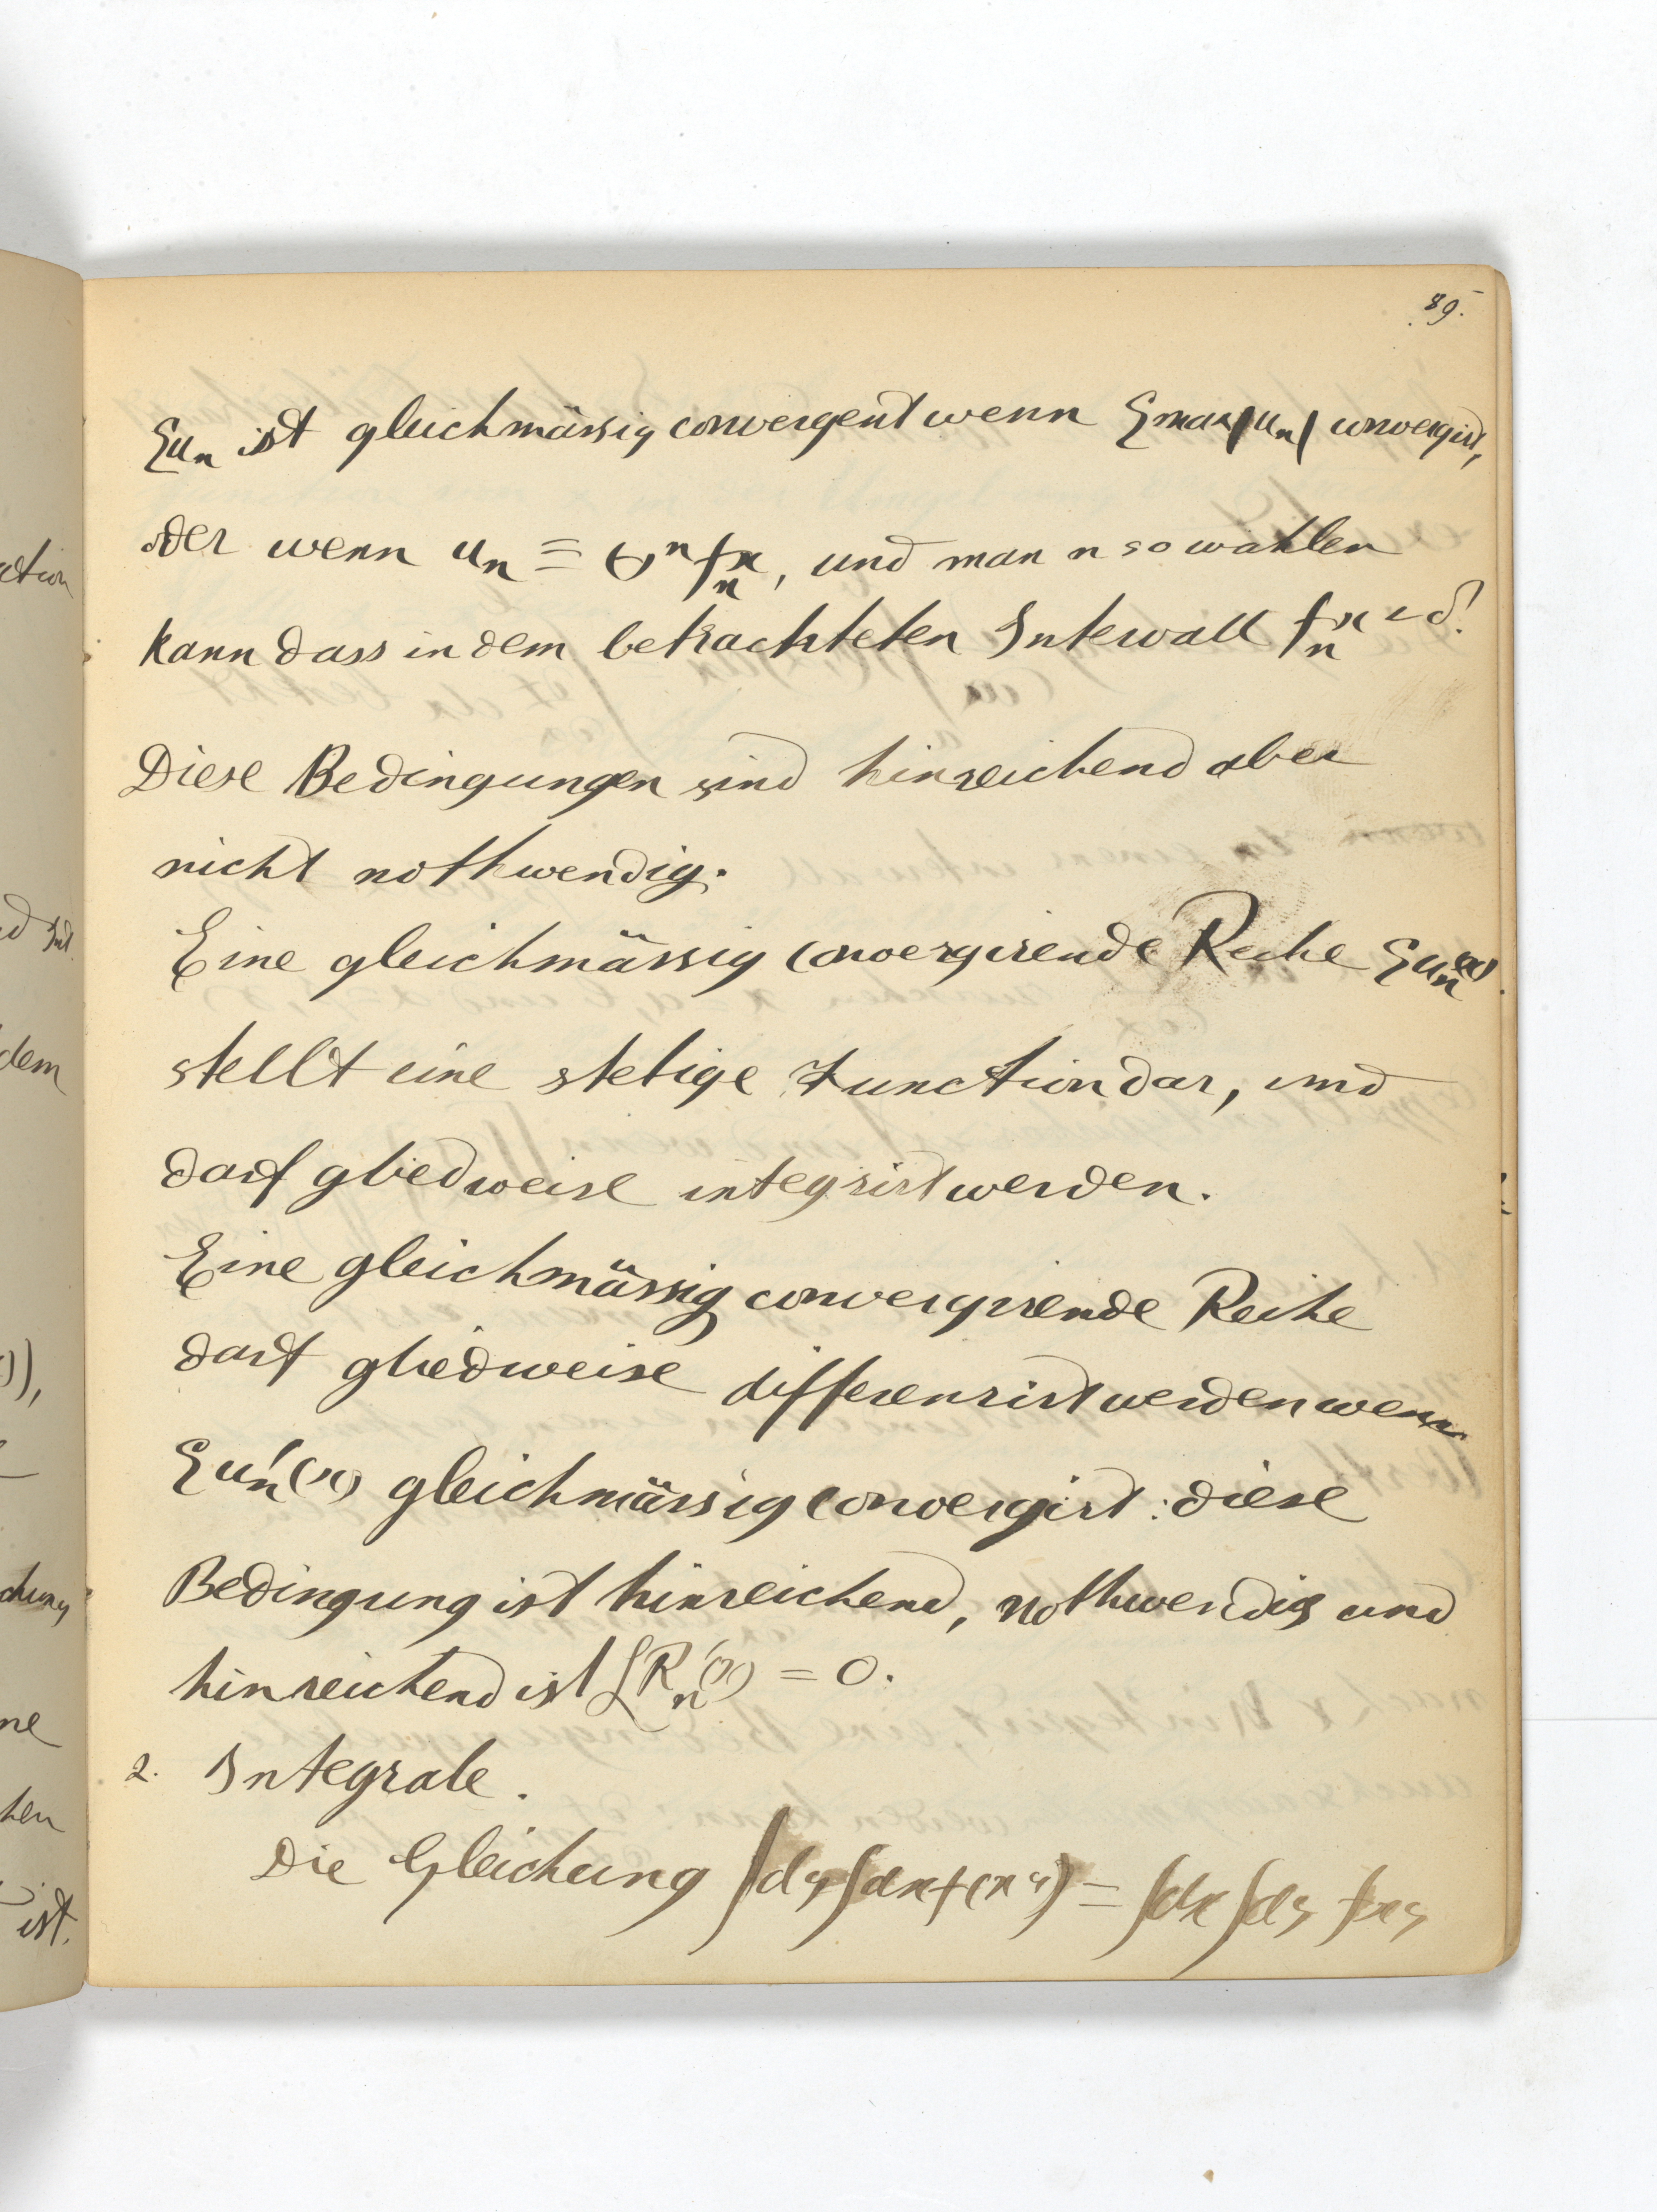 89.
Σuₙ ist gleichmässig convergent wenn Σmax|uₙ| convergirt,
oder wenn uₙ = (-)ⁿ fₙx, und man n so wählen
kann dass in dem betrachteten Intervall fₙx < δ!
Diese Bedingungen sind hinreichend aber
nicht nothwendig.
Eine gleichmässig convergirende Reihe Σuₙ(x)
stellt eine stetige Function dar, und
darf gliedweise integrirt werden.
Eine gleichmässig convergirende Reihe
darf gliedweise differenzirt werden wenn
Σuₙ'(x) gleichmässig convergirt: diese
Bedingung ist hinreichend, nothwendig und
hinreichend ist LRₙ'(x) = 0.
2. Integrale.
Die Gleichung ∫dy∫dx f(xy) = ∫dx∫dy fxy
ction
dem
)),
chung
ne
hen
ist.